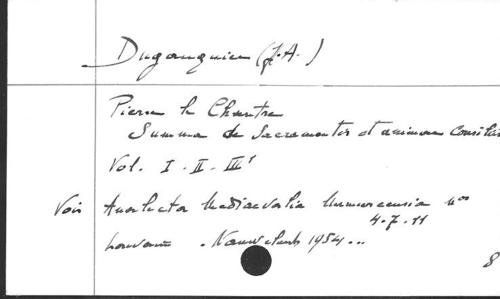 Dugauquier (J.A.)
Pierre le Chantre
Summa de Sacramentis et animae consiliis
Vol. I - II - III¹
Voir Analecta Mediaevalia Namurcensia nos
4.7.11
Louvain. Nauwelaerts 1954...
8